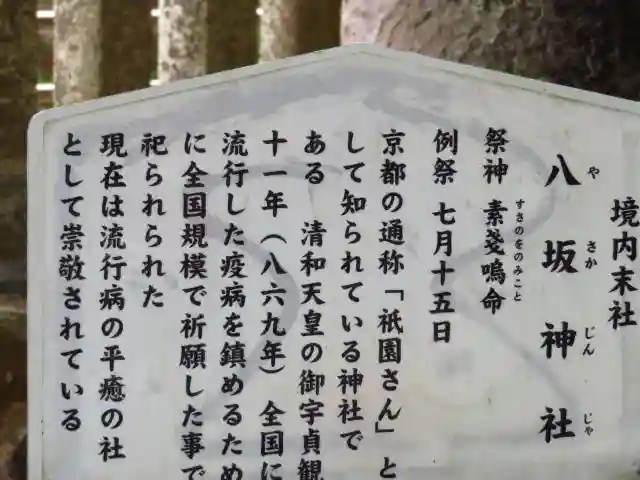 境内末社
八坂神社
やさかじんじゃ
祭神 素戔嗚命
すさのをのみこと
例祭 七月十五日
京都の通称「祇園さん」と
して知られている神社で
ある 清和天皇の御宇貞観
十一年(八六九年)全国に
流行した疫病を鎮めるため
に全国規模で祈願した事で
祀られられた
現在は流行病の平癒の社
として崇敬されている